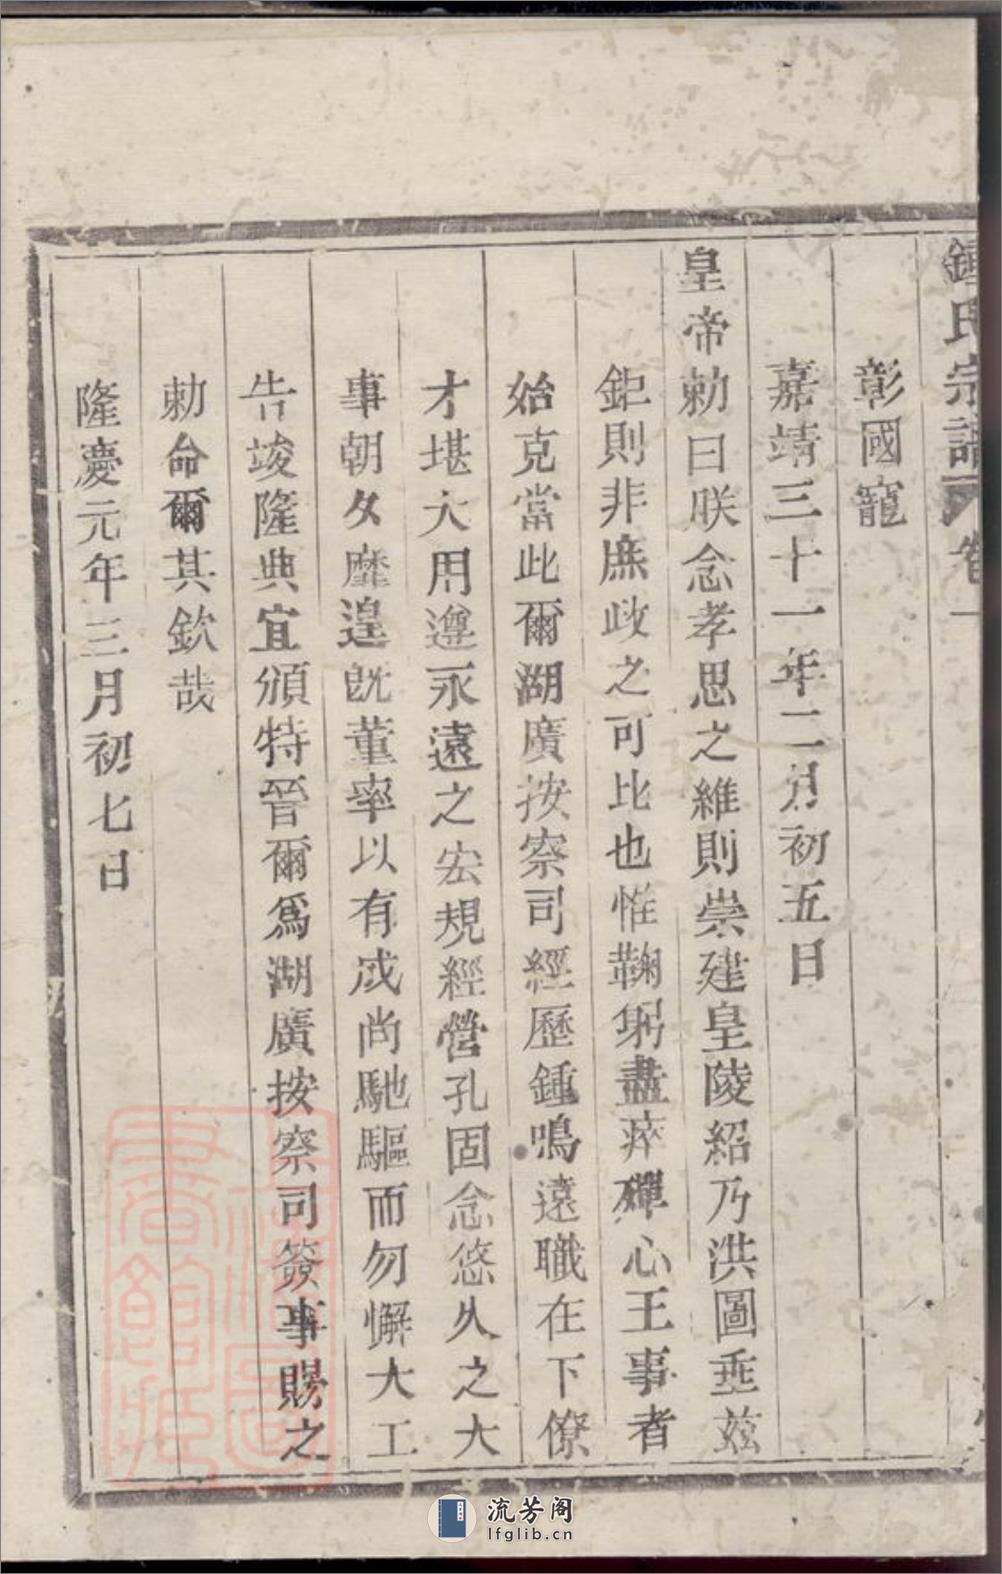 鍾氏宗譜 卷一
彰國寵
嘉靖三十一年二月初五日
皇帝勅曰朕念孝思之維則崇建皇陵紹乃洪圖垂茲
鉅則非庶政之可比也惟鞠躬盡瘁殫心王事者
始克當此爾湖廣按察司經歷鍾鳴遠職在下僚
才堪大用遵永遠之宏規經營孔固念悠久之大
事朝夕靡遑旣董率以有成尚馳驅而勿懈大工
告竣隆典宜頒特晉爾爲湖廣按察司簽事賜之
勅命爾其欽哉
隆慶元年三月初七日
流芳阁
lfglib.cn